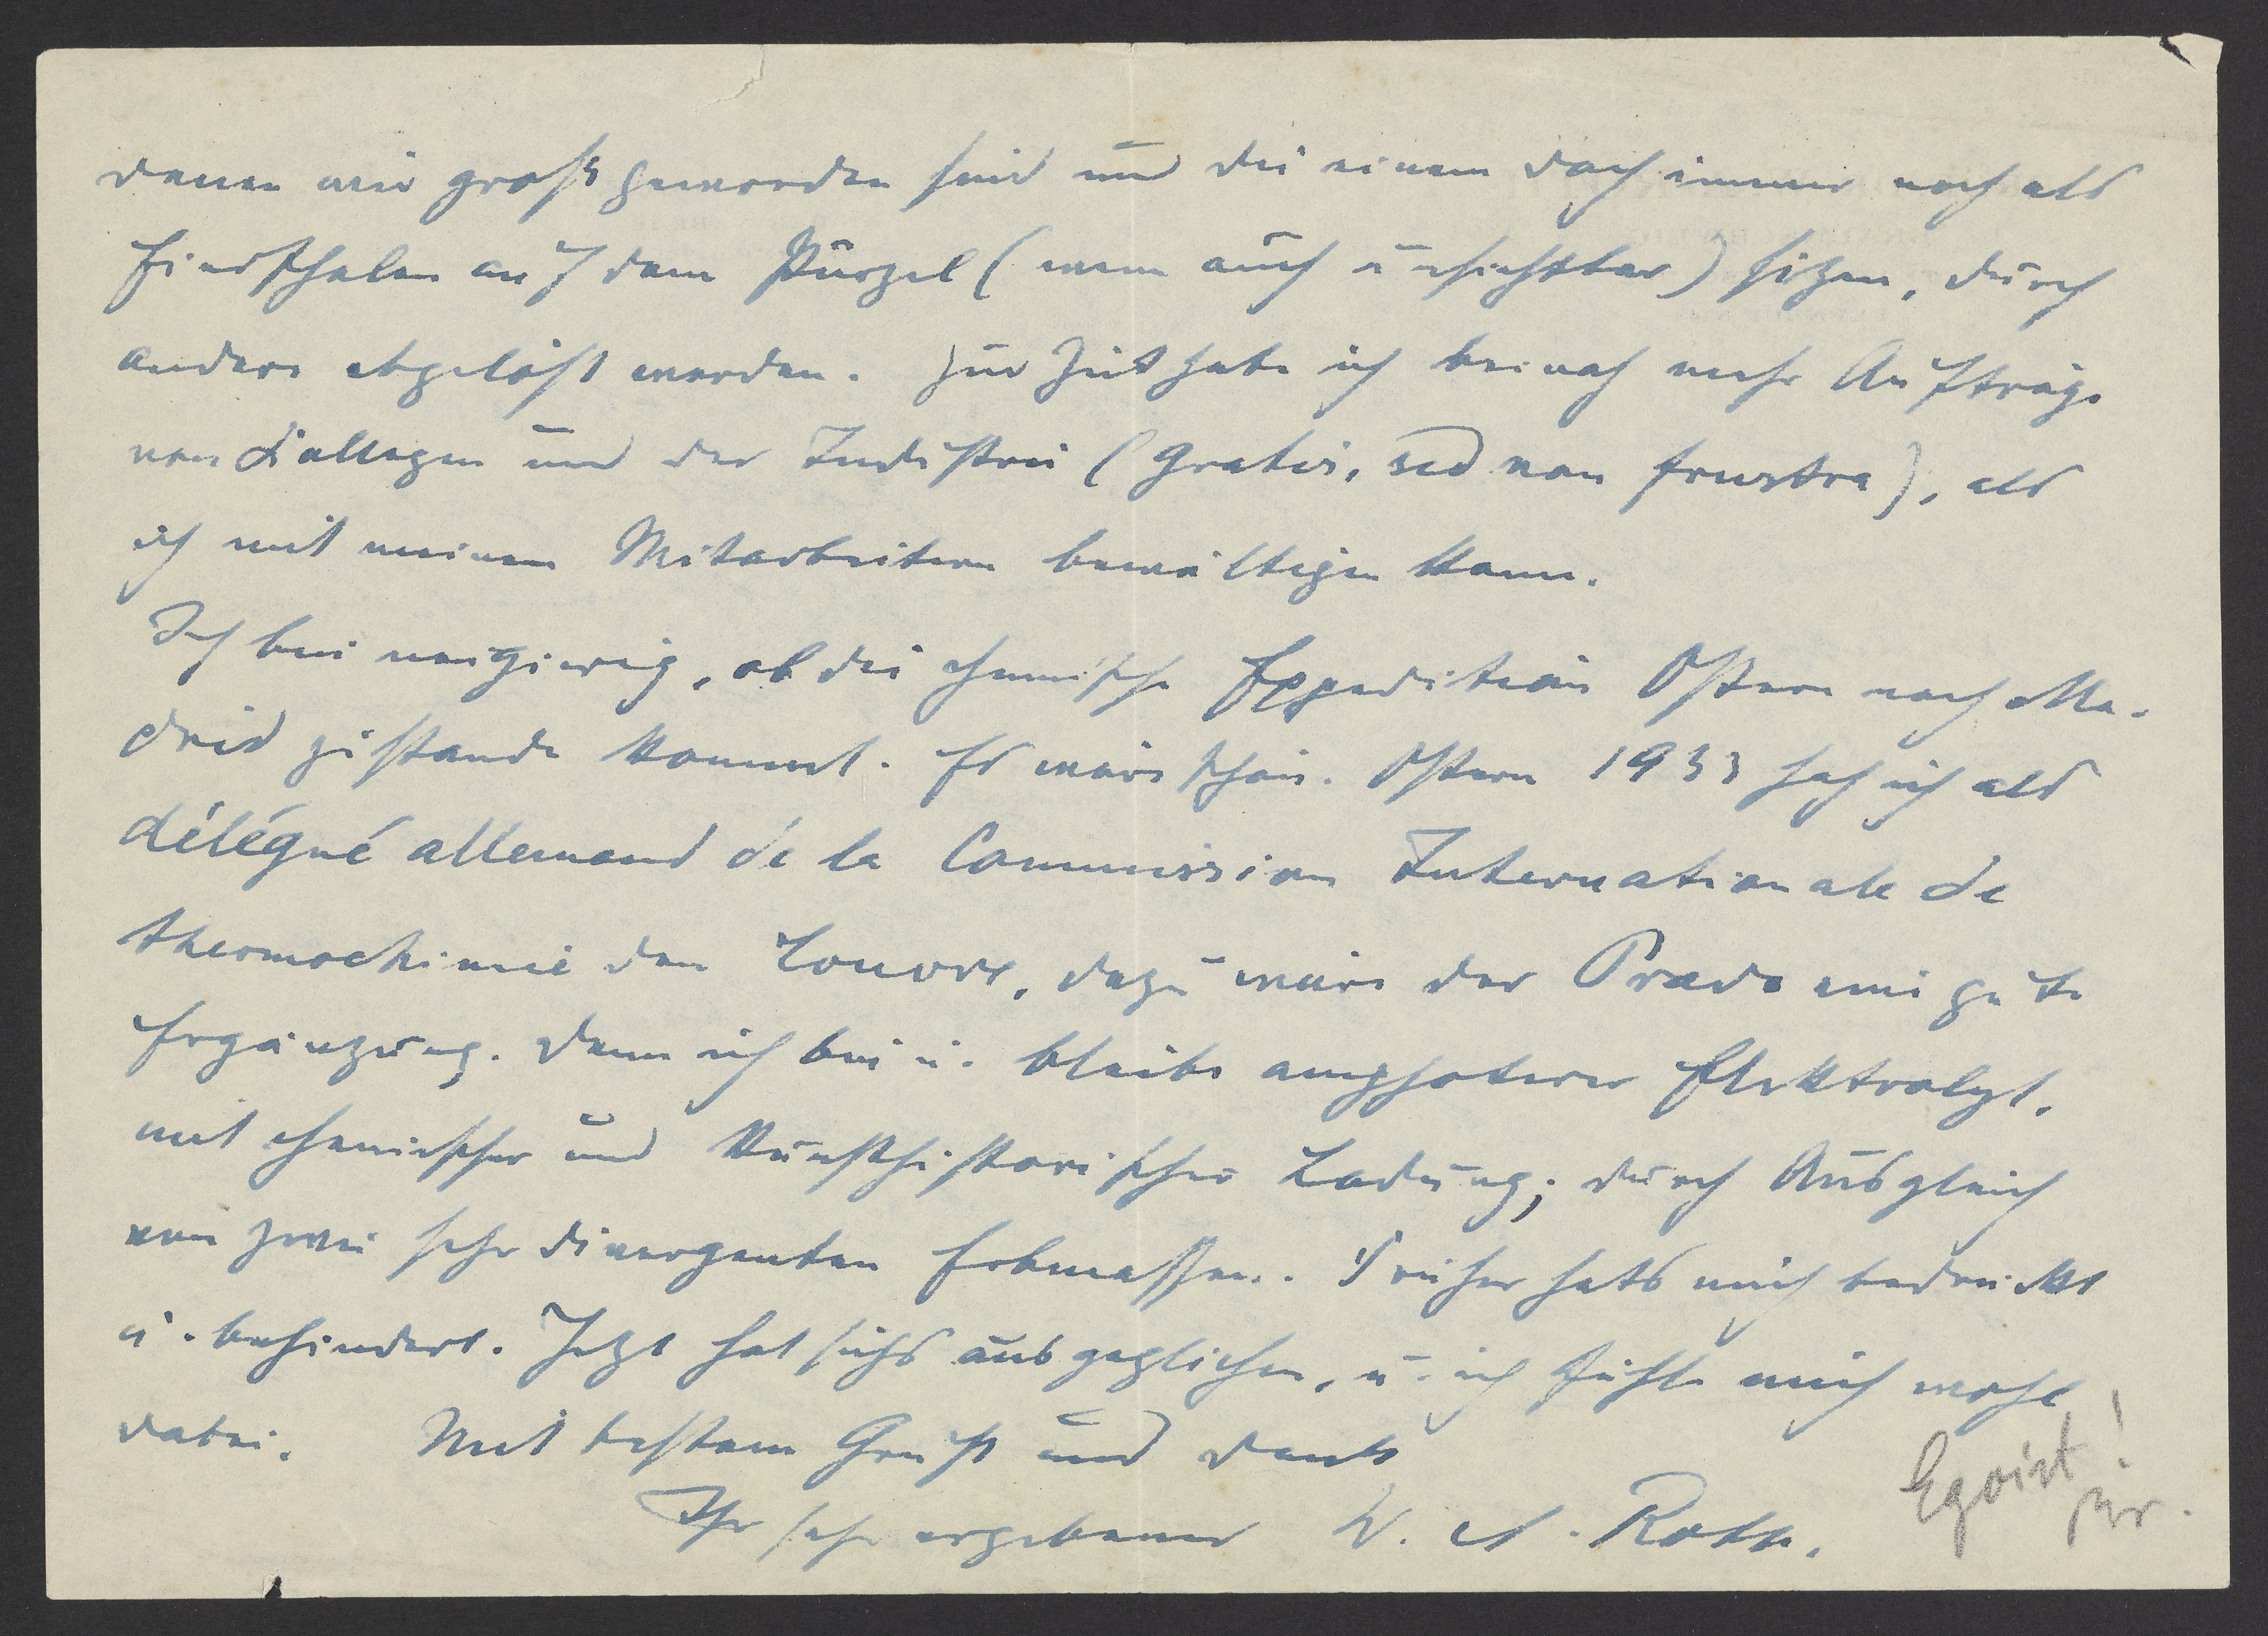 denen wir groß geworden sind und die einem doch immer noch als
Eierschalen auf dem Pürzel (wenn auch unsichtbar) sitzen, durch
andere abgelöst werden. Zur Zeit habe ich beinah mehr Aufträge
von Kollegen und der Industrie (gratis, sed non frustra), als
ich mit meinen Mitarbeitern bewältigen kann.
Ich bin neugierig, ob die chemische Expedition Ostern nach Ma-
drid zustande kommt. Es wäre schön. Ostern 1933 sah ich als
délégué allemand de la Commission Internationale de
thermochimie den Louvre, dazu wäre der Prado eine gute
Ergänzung. Denn ich bin u. bleibe amphoterer Elektrolyt,
mit chemischer und kunsthistorischer Ladung; durch Ausgleich
von zwei sehr divergenten Erbmassen. Früher hats mich bedrückt
u. behindert. Jetzt hat sichs ausgeglichen, u. ich fühle mich wohl
dabei. Mit bestem Gruß und Dank
Ihr sehr ergebener W. A. Roth.
Egoist!